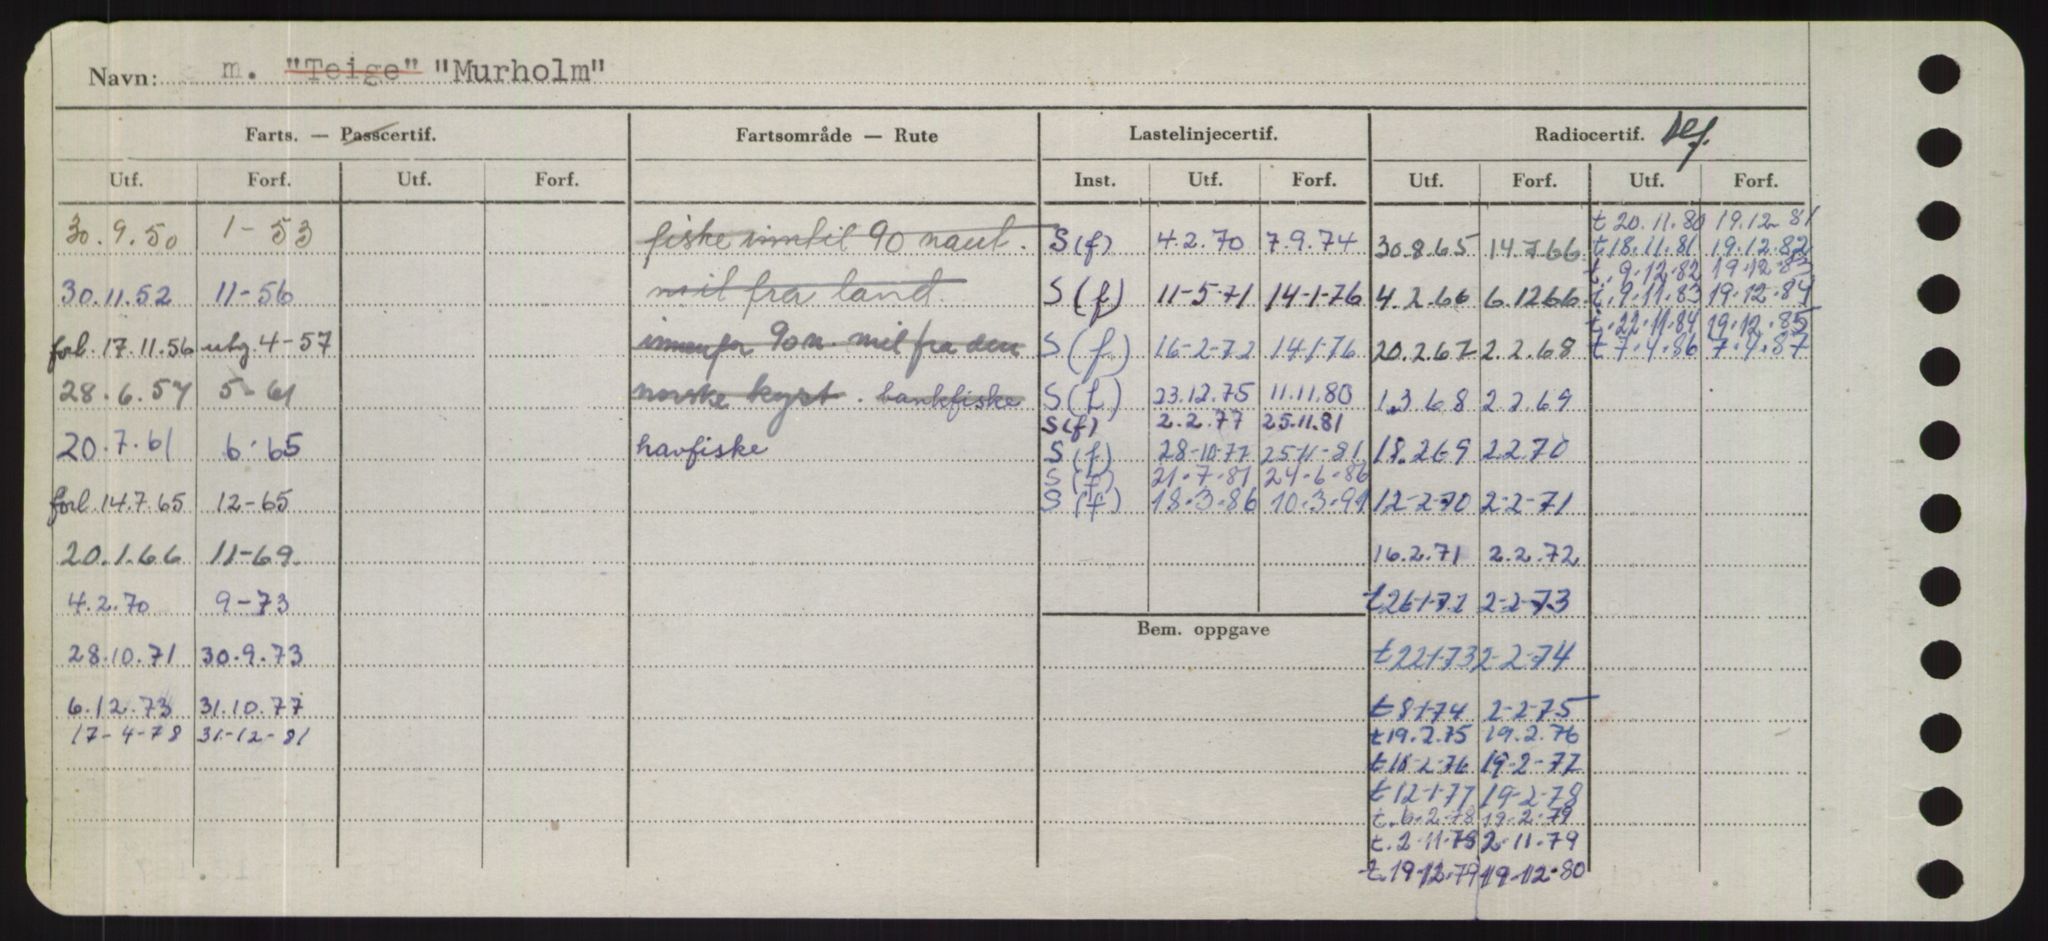 Navn: m. "Teige" "Murholm"
Farts. — Passcertif. Fartsområde — Rute Lastelinjecertif. Radiocertif.
Utf. Forf. Utf. Forf. Inst. Utf. Forf. Utf. Forf. Utf. Forf.
t 20.11.80 19.12.81
30.9.50 1-53 fiske inntil 90 naut. S(f) 4.2.70 7.9.74 30.8.65 14.7.66 t 18.11.81 19.12.82
t. 9.12.82 19.12.83
30.11.52 11-56 mil fra land. S(f) 11-5-71 14-1-76 4.2.66 6.1266 t. 9.11.83 19.12.84
t. 22.11.84 19.12.85
forl. 17.11.56 utg. 4-57 innenfor 90 n. mil fra den S(f) 16-2-72 14-1-76 20.2.67 2.2.68 t 7.4.86 7.4.87
28.6.57 5-61 norske kyst. bankfiske S(f) 23.12.75 11.11.80 1.3.68 2.2.69
S(f) 2.2.77 25.11.81
20.7.61 6.65 havfiske S(f) 28-10-77 25-11-81 18.2.69 2.2.70
S(f) 21.7.81 24-6-86
forl. 14.7.65 12-65 S(f) 18.3.86 10.3.91 12-2-70 2-2-71
20.1.66 11-69 16.2.71 2.2.72
4.2.70 9-73 t 26-1-72 2-2-73
Bem. oppgave
28.10.71 30.9.73 t 22-1-73 2-2-74
6.12.73 31.10.77 t 8-1-74 2-2-75
17-4-78 31-12-81 t 19.2.75 19.2.76
t 18-2-76 19-2-77
t 12-1-77 19-2-78
t. 6-2-78 19-2-79
t. 2-11-78 2-11-79
t. 19-12-79 19-12-80